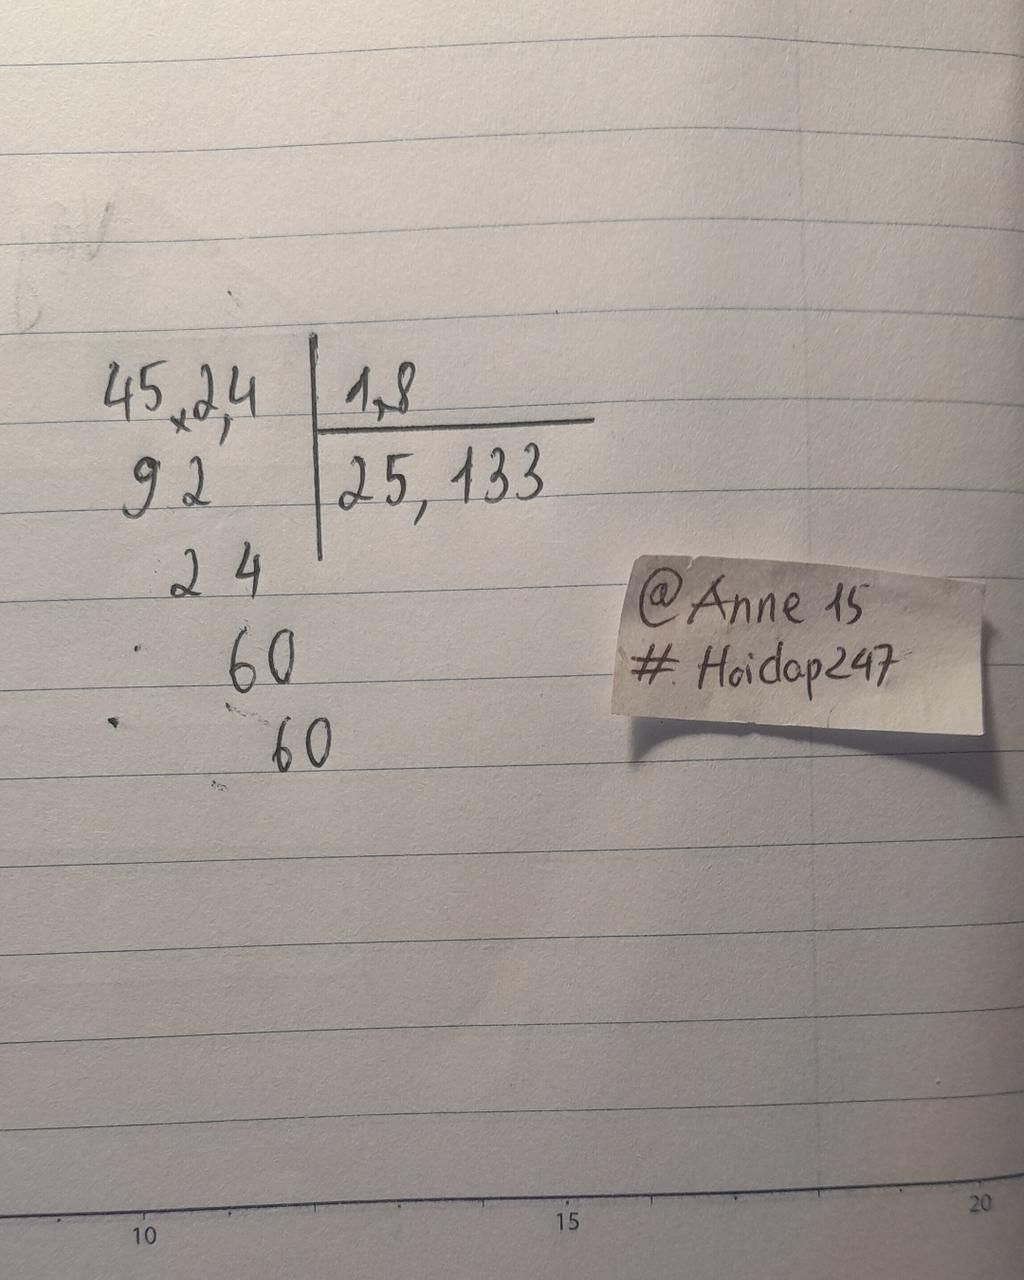 45,2,4 1,8
92 25,133
24
60
60
@Anne 15
# Hoidap247
10 15 20